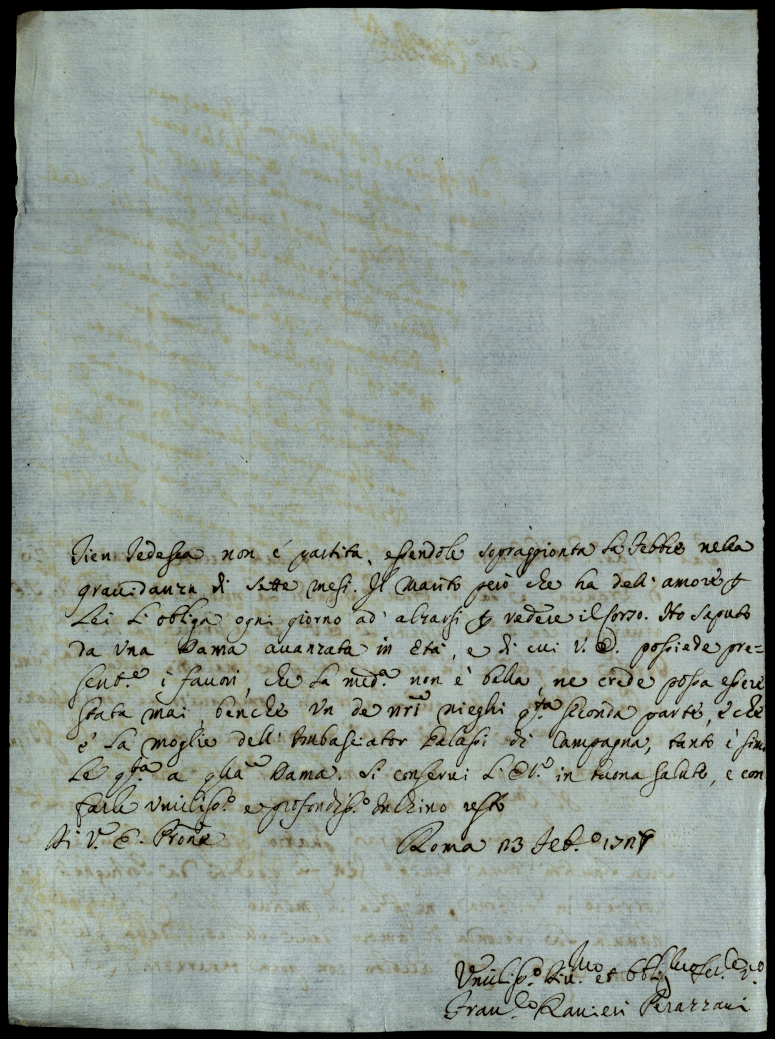 Tedesca non è partita, essendole sopraggionta la febbre nella
gravidanza di sette mesi. Il Marito però che ha dell'amore p
Lei l'obliga ogni giorno ad alzarsi p vedere il Corso. Ho saputo
da una Dama avanzata in età, e di cui V. E. possiede pre=
sent.e i favori, che la med.a non è bella, ne crede possa essere
stata mai, benche un de nri nieghi q.ta seconda parte, e che
è la moglie dell'Ambasciator di Campagna, tanto è simi
le q.ta a q.lla Dama. Si conservi l'E. V. in buona salute, e con
farle umiliss.o e profondiss.o inchino resto
Di V. E. Prone
Roma 23 Feb.o
Umiliss.o Div.mo et Obblig.mo Ser.e V.o
Fran.co Ranieri